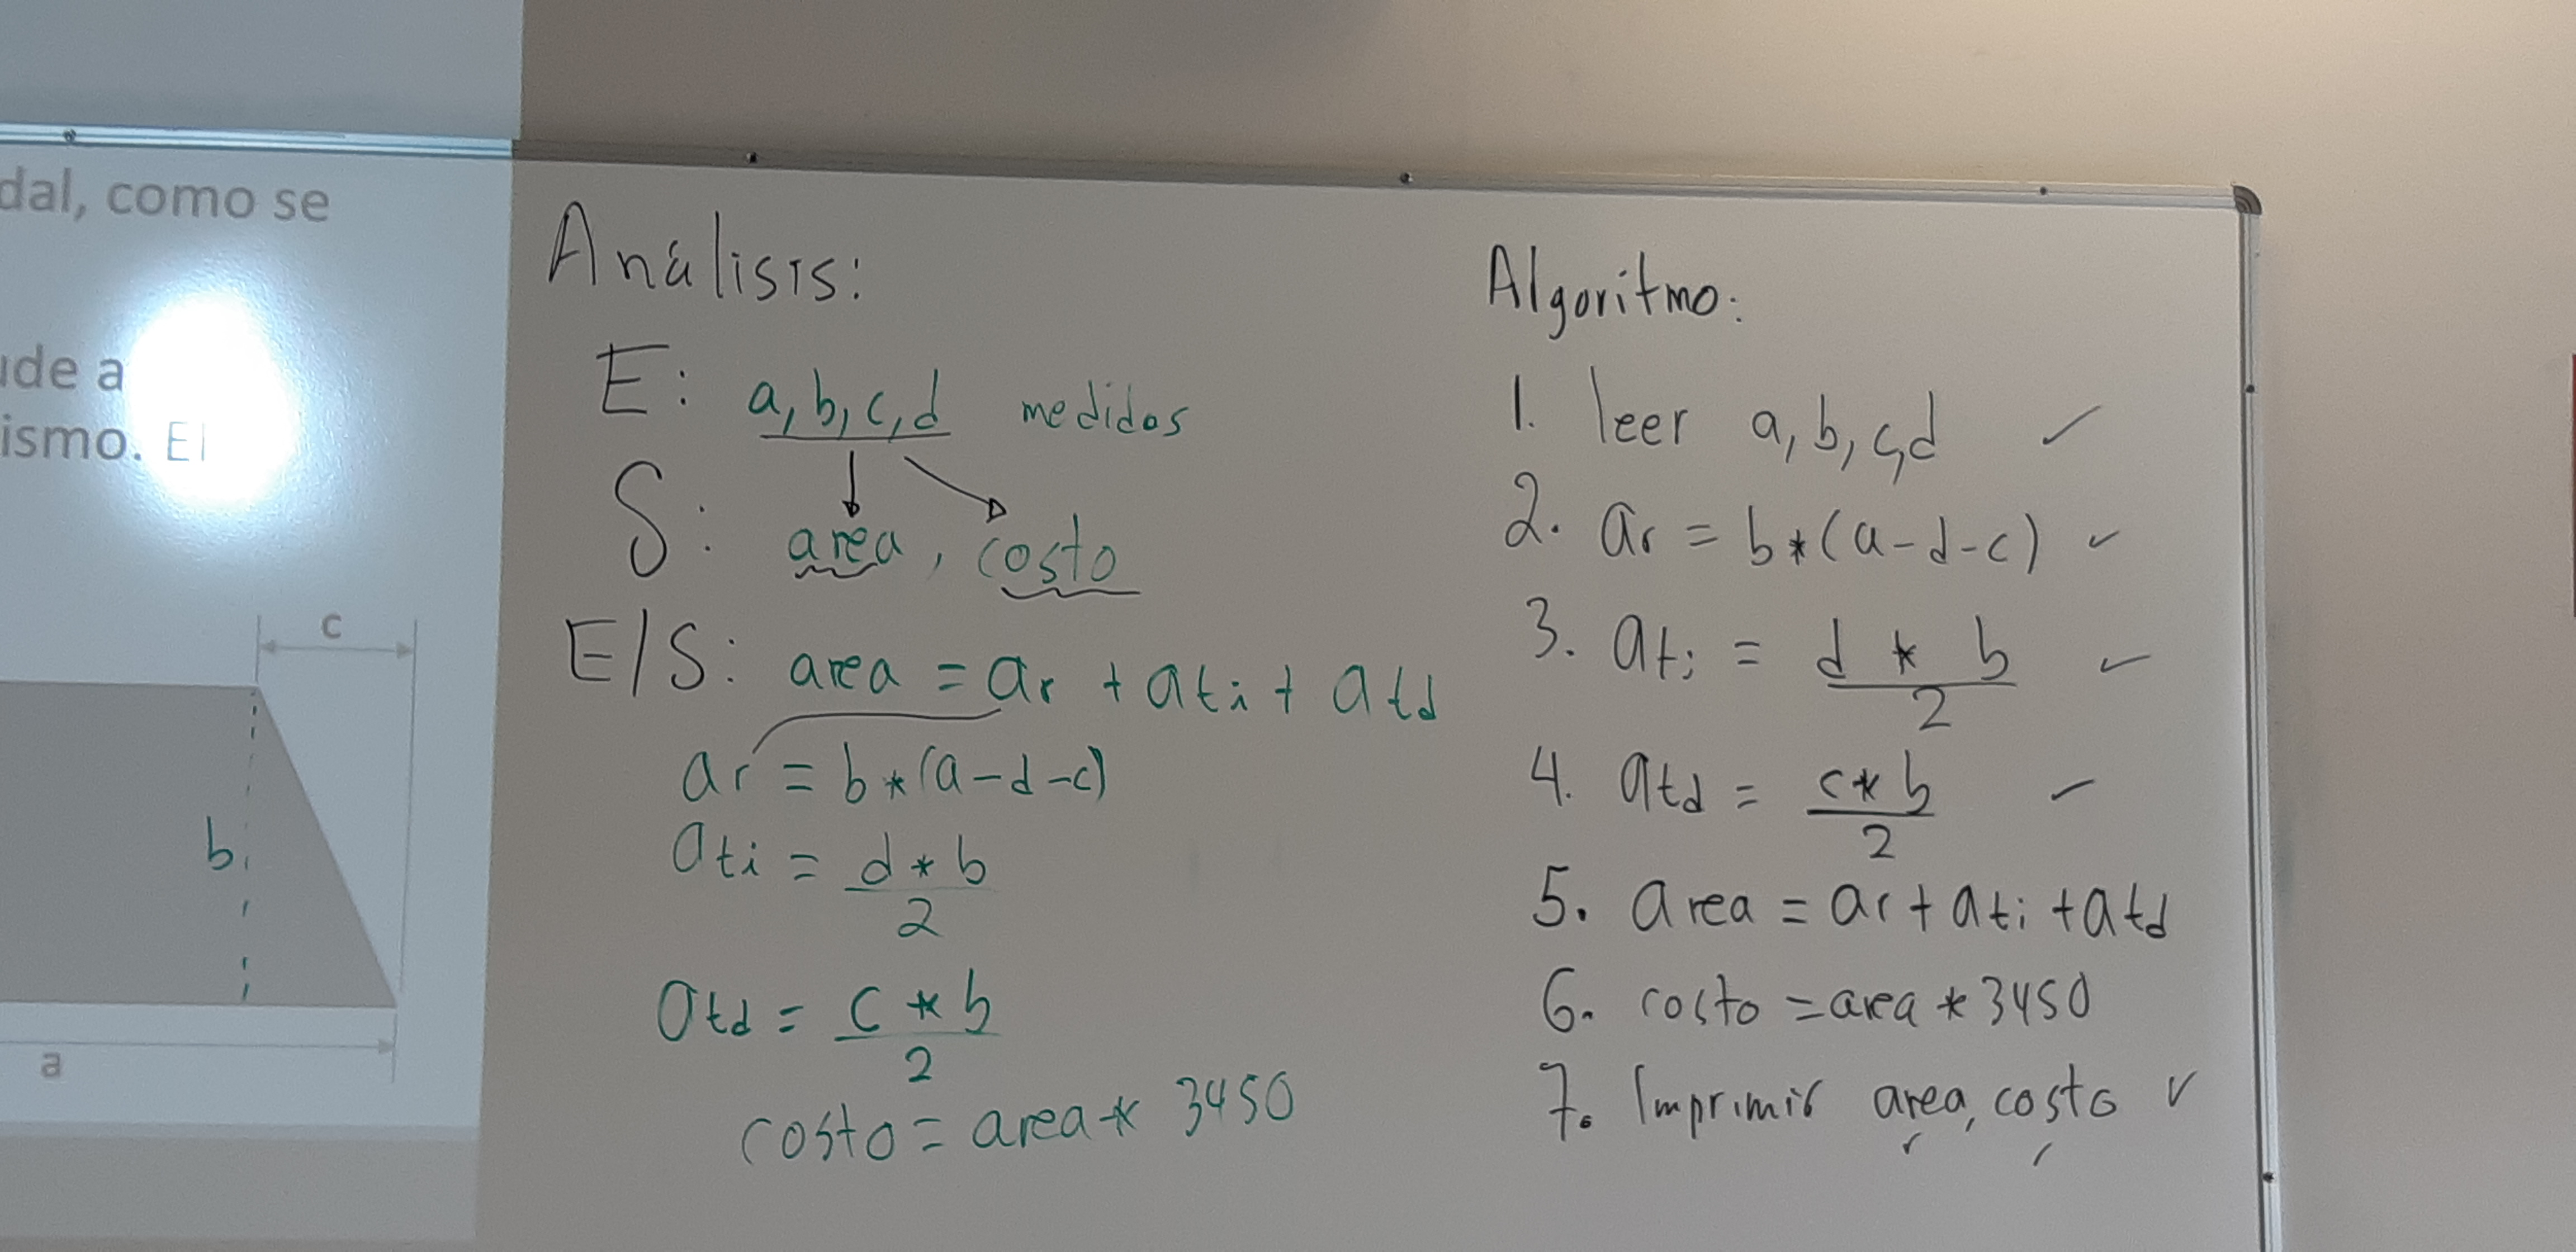 dal, como se
ude a
ismo. El
c
b
a
Análisis:
E: a, b, c, d medidas
S: area, costo
E/S: area = ar + ati + atd
ar = b*(a-d-c)
ati = d * b
2
atd = c * b
2
costo = area * 3450
Algoritmo:
1. leer a, b, c, d
2. ar = b*(a-d-c)
3. ati = d * b
2
4. atd = c * b
2
5. area = ar + ati + atd
6. costo = area * 3450
7. Imprimir area, costo